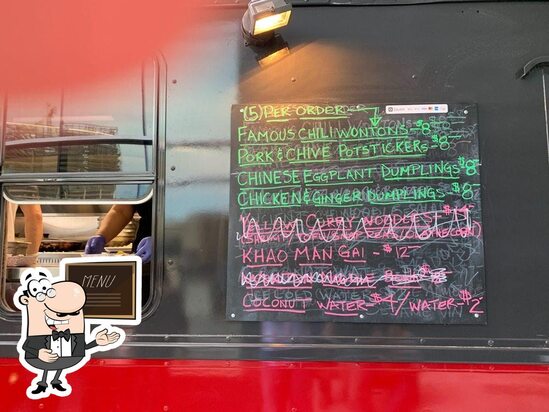 (5) PER ORDER
FAMOUS CHILI WONTONS - $8-
PORK & CHIVE POTSTICKERS - $8-
CHINESE EGGPLANT DUMPLINGS - $8-
CHICKEN & GINGER DUMPLINGS - $8-
KHAO MAN GAI - $12-
COCONUT WATER - $4 / WATER - $2-
MENU